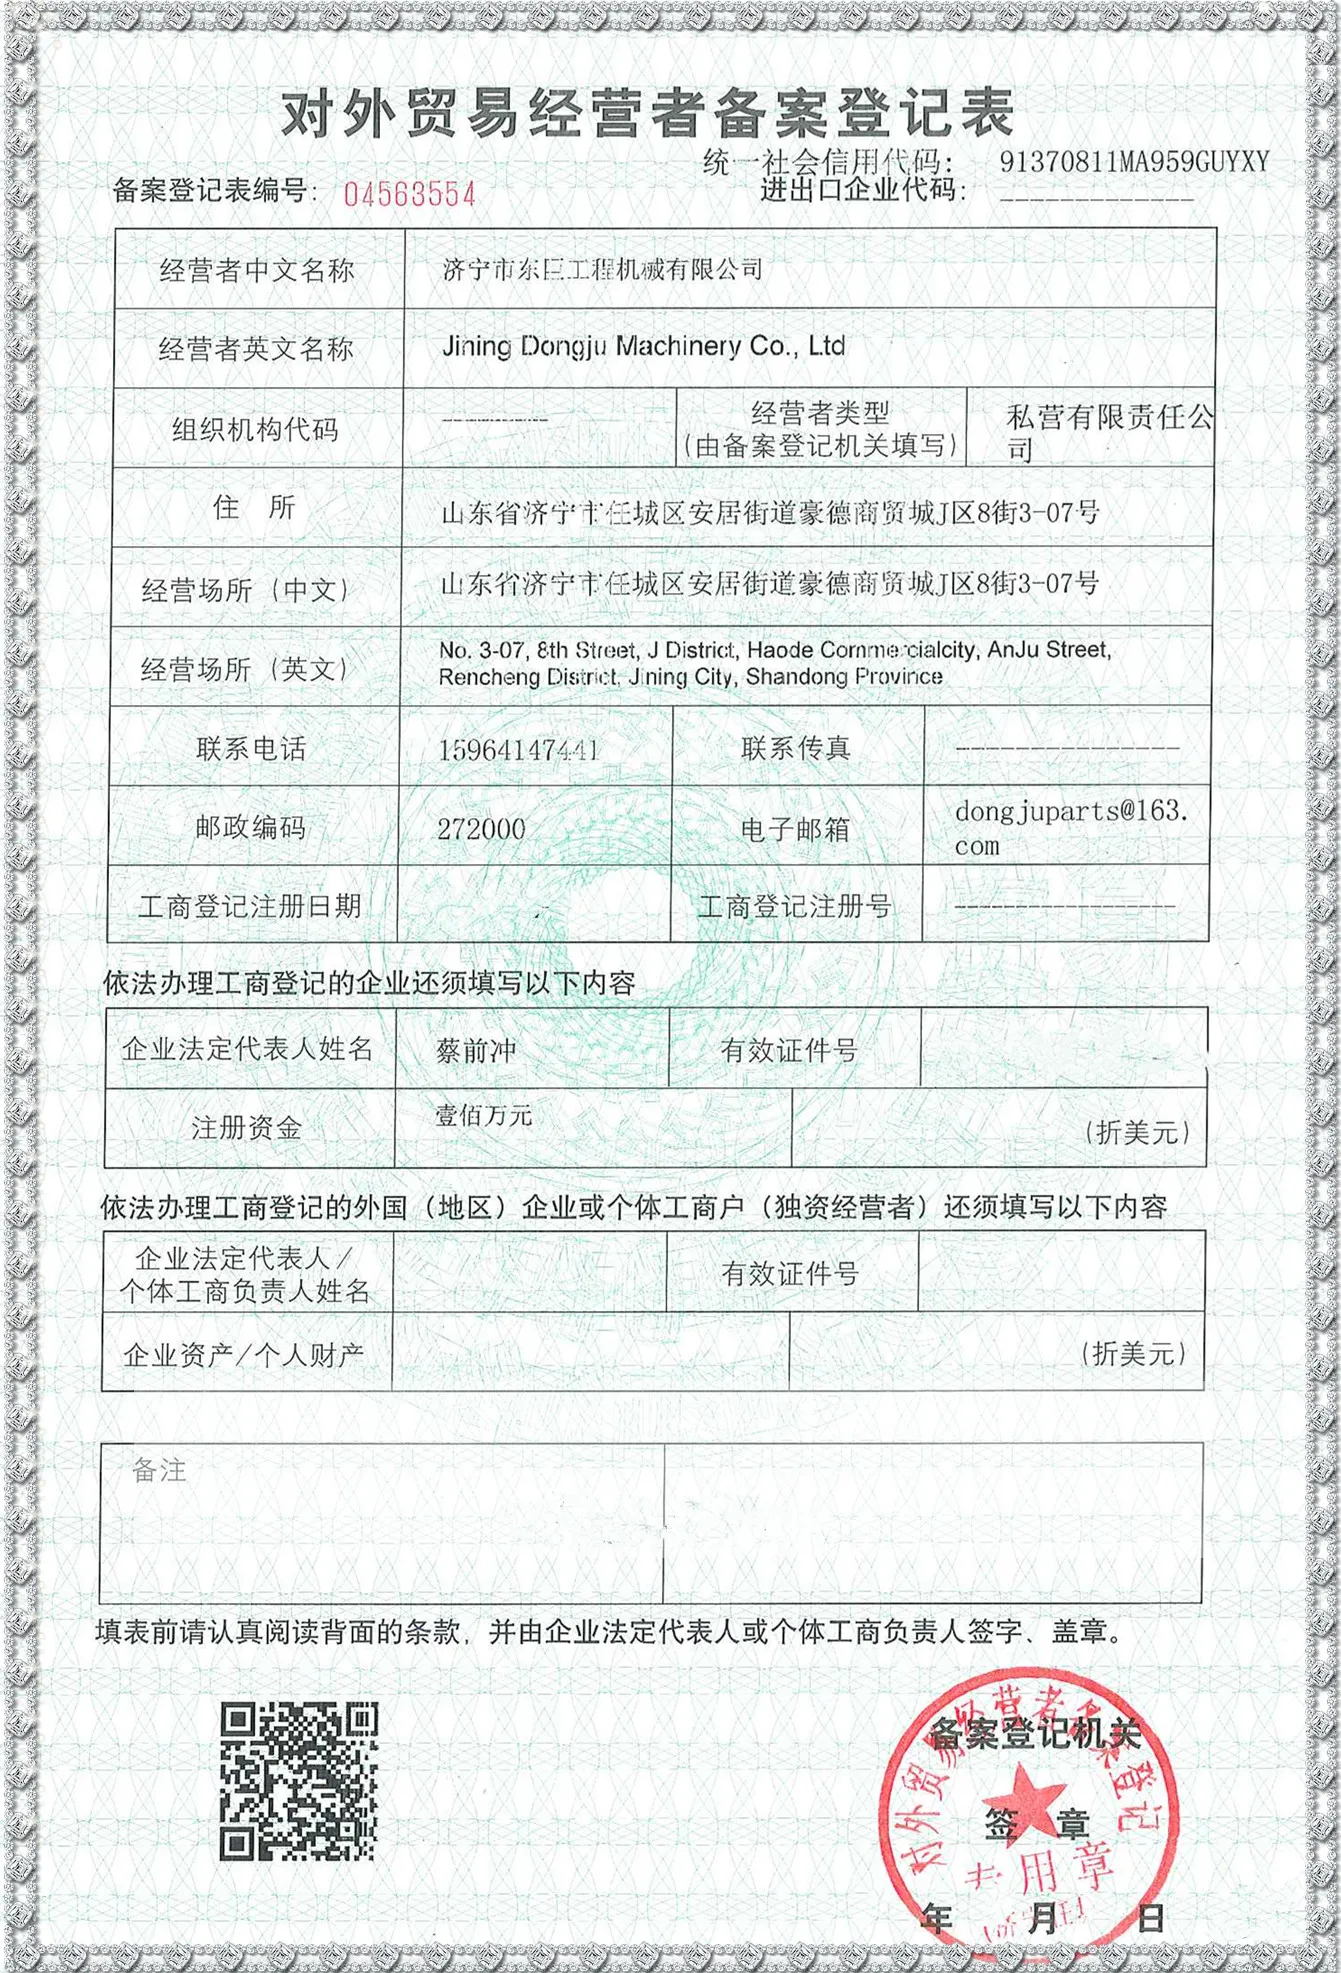 对外贸易经营者备案登记表
统一社会信用代码： 91370811MA959GUYXY
备案登记表编号： 04563554 进出口企业代码： -------------
经营者中文名称 济宁市东巨工程机械有限公司
经营者英文名称 Jining Dongju Machinery Co., Ltd
组织机构代码 ---------- 经营者类型 私营有限责任公
(由备案登记机关填写) 司
住 所 山东省济宁市任城区安居街道豪德商贸城J区8街3-07号
经营场所（中文） 山东省济宁市任城区安居街道豪德商贸城J区8街3-07号
经营场所（英文） No. 3-07, 8th Street, J District, Haode Commercialcity, AnJu Street,
Rencheng District, Jining City, Shandong Province
联系电话 15964147441 联系传真 ---------------
邮政编码 272000 电子邮箱 dongjuparts@163.
com
工商登记注册日期 工商登记注册号 ---------------
依法办理工商登记的企业还须填写以下内容
企业法定代表人姓名 蔡前冲 有效证件号
注册资金 壹佰万元 (折美元)
依法办理工商登记的外国（地区）企业或个体工商户（独资经营者）还须填写以下内容
企业法定代表人/
个体工商负责人姓名 有效证件号
企业资产/个人财产 (折美元)
备注
填表前请认真阅读背面的条款，并由企业法定代表人或个体工商负责人签字、盖章。
对外贸易经营者备案登记
备案登记机关
签 章
专用章
年 月 日